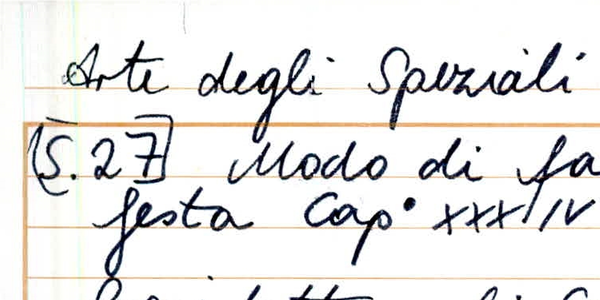 Arte degli Speziali
[S. 27] Modo di fa
festa Cap° XXXIV